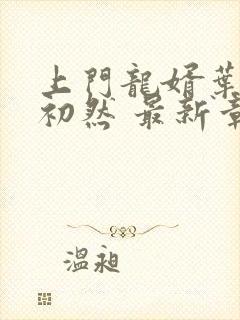 上門龍婿葉
初然 最新章
溫昶